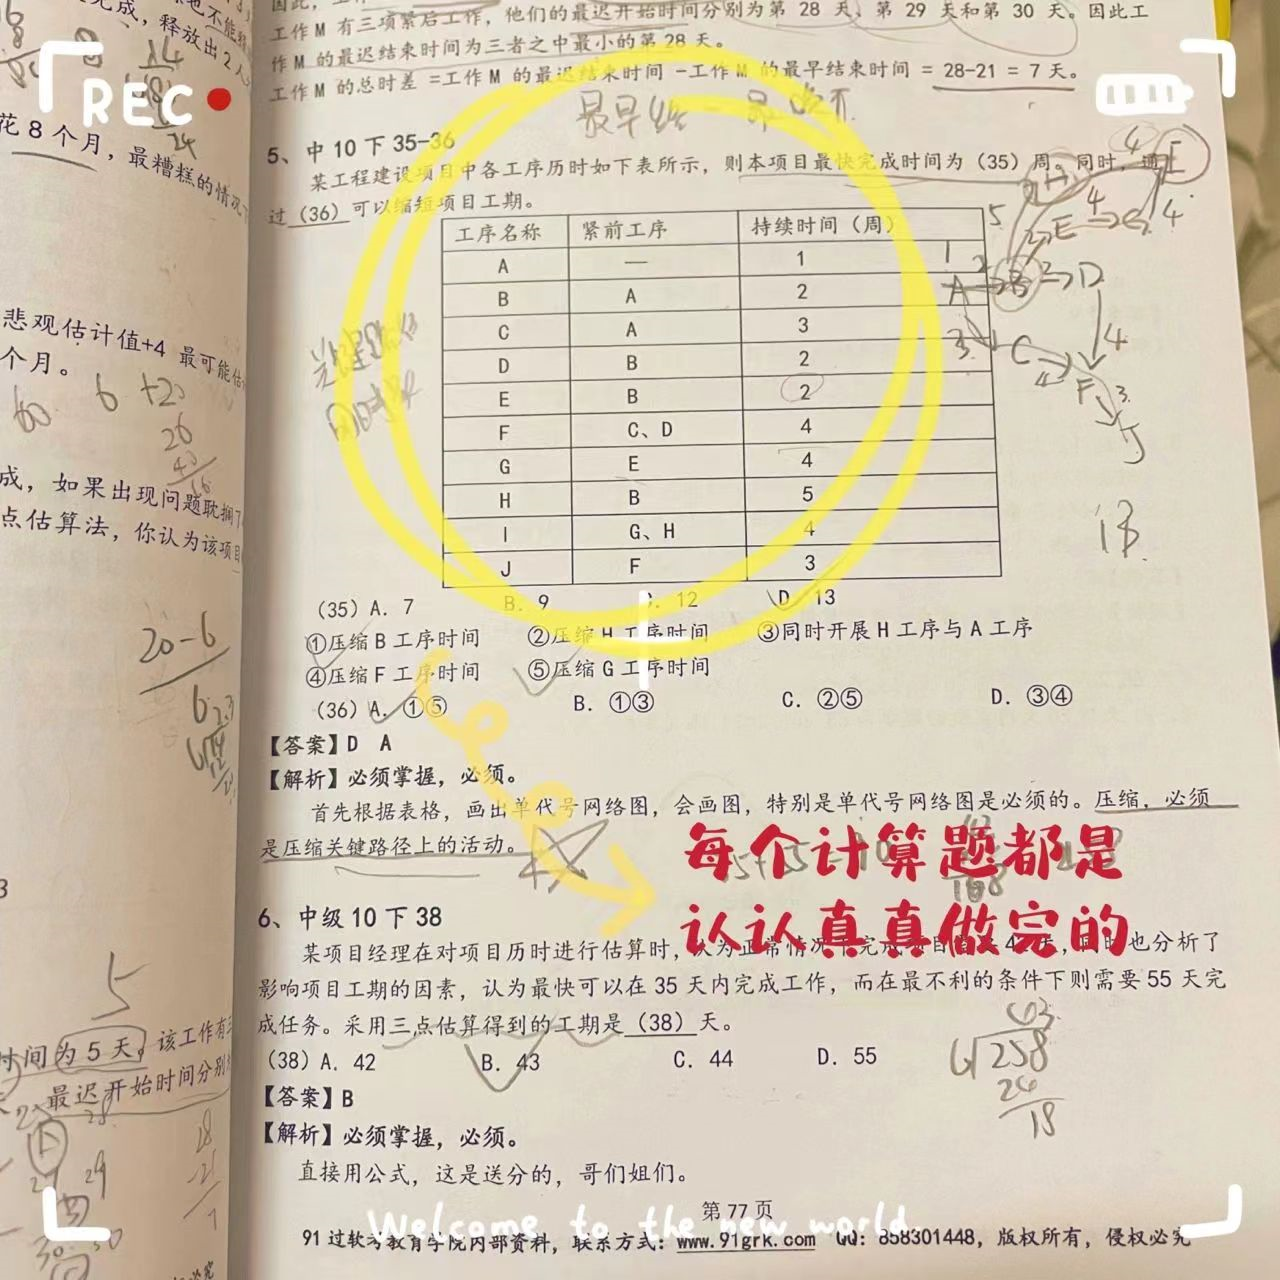 REC
因此，工
工作M有三项紧后工作，他们的最迟开始时间分别为第 28 天、第 29 天和第 30 天。因此工
作M的最迟结束时间为三者之中最小的第 28 天。
工作M的总时差 =工作M 的最迟结束时间 -工作M 的最早结束时间 = 28-21 = 7 天。
5、中 10 下 35-36
某工程建设项目中各工序历时如下表所示，则本项目最快完成时间为（35）周。同时，通
过（36）可以缩短项目工期。
工序名称 紧前工序 持续时间（周）
A — 1
B A 2
C A 3
D B 2
E B 2
F C、D 4
G E 4
H B 5
I G、H 4
J F 3
（35）A. 7 B. 9 C. 12 D. 13
①压缩 B 工序时间 ②压缩 H 工序时间 ③同时开展 H 工序与 A 工序
④压缩 F 工序时间 ⑤压缩 G 工序时间
（36）A. ①⑤ B. ①③ C. ②⑤ D. ③④
【答案】D A
【解析】必须掌握，必须。
首先根据表格，画出单代号网络图，会画图，特别是单代号网络图是必须的。压缩，必须
是压缩关键路径上的活动。
每个计算题都是
认认真真做完的
6、中级 10 下 38
某项目经理在对项目历时进行估算时，认为正常情况下完成项目需要 42 天，同时也分析了
影响项目工期的因素，认为最快可以在 35 天内完成工作，而在最不利的条件下则需要 55 天完
成任务。采用三点估算得到的工期是（38）天。
（38）A. 42 B. 43 C. 44 D. 55
【答案】B
【解析】必须掌握，必须。
直接用公式，这是送分的，哥们姐们。
第 77 页
Welcome to the new world.
91 过软考教育学院内部资料，联系方式：www.91grk.com QQ：858301448，版权所有，侵权必究
成，释放出 2 人
花 8 个月，最糟糕的情况
悲观估计值+4 最可能估
个月。
成，如果出现问题耽搁了
点估算法，你认为该项目
20-6
5
时间为 5 天，该工作有三
最迟开始时间分别
43
258
24
18
13